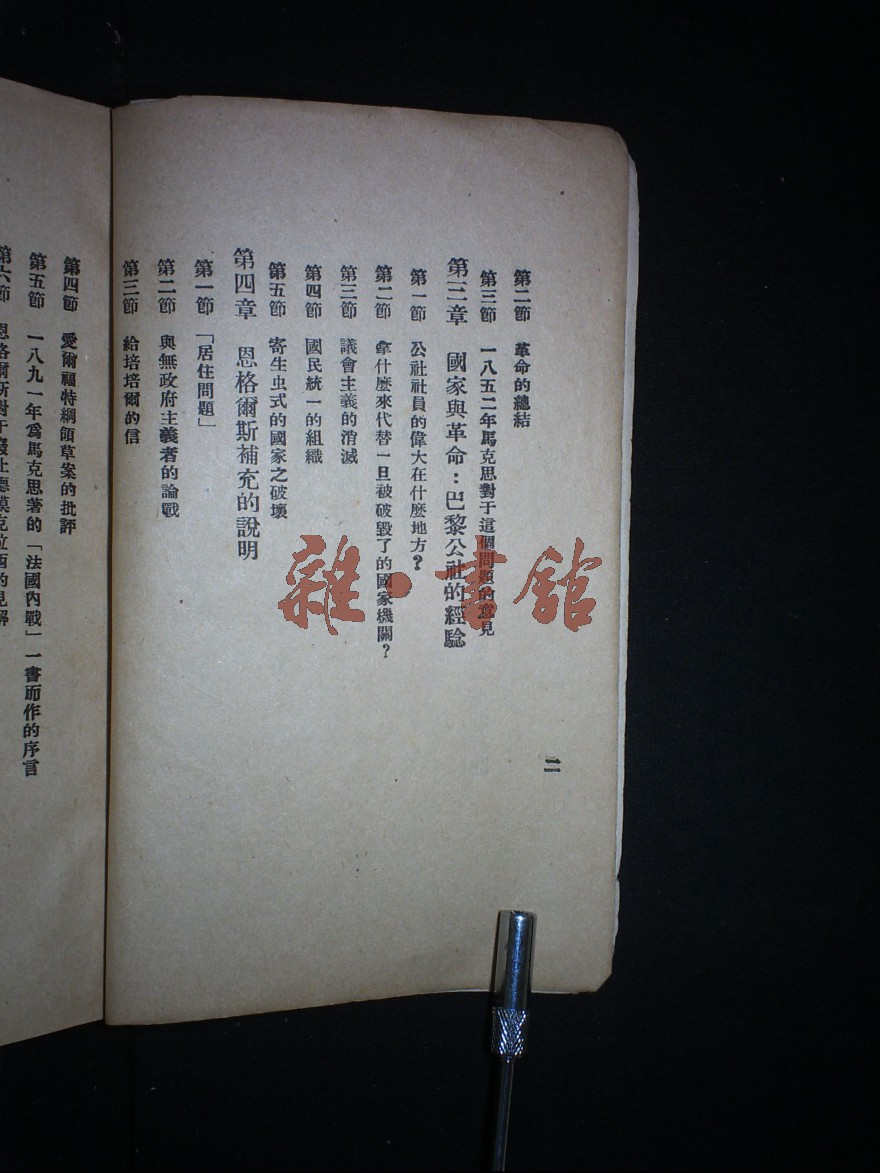 第二節 革命的總結
第三節 一八五二年馬克思對于這個問題的意見
第三章 國家與革命：巴黎公社的經驗
第一節 公社社員的偉大在什麼地方？
第二節 拿什麼來代替一旦被破毀了的國家機關？
第三節 議會主義的消滅
第四節 國民統一的組織
第五節 寄生虫式的國家之破壞
第四章 恩格爾斯補充的說明
第一節 「居住問題」
第二節 與無政府主義者的論戰
第三節 給培培爾的信
二
第四節 愛爾福特綱領草案的批評
第五節 一八九一年爲馬克思著的「法國內戰」一書而作的序言
第六節 恩格爾斯對于德莫克拉西的見解
雜·書館